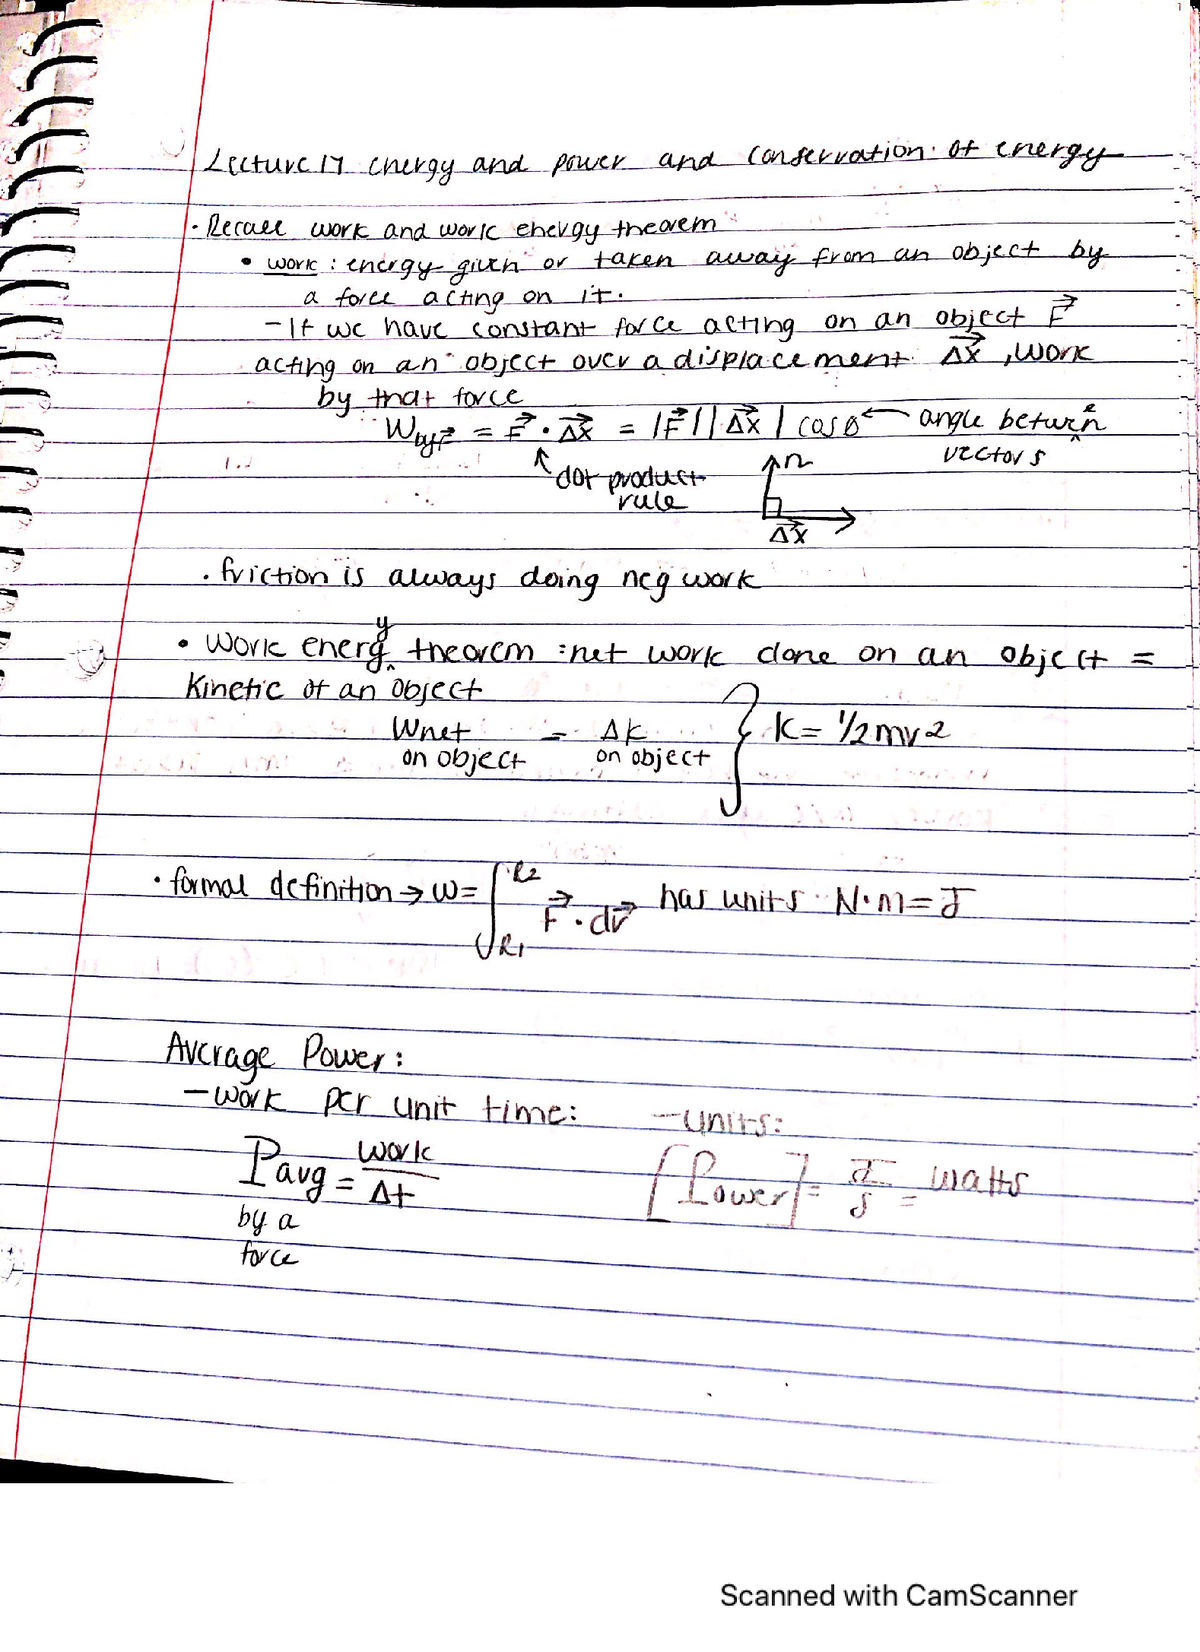 Lecture 17 energy and power and conservation of energy
· Recall work and work energy theorem
• work : energy given or taken away from an object by
a force acting on it.
- If we have constant force acting on an object F⃗
acting on an object over a displacement Δx⃗ , work
by that force
W by F⃗ = F⃗ · Δx⃗ = |F⃗| |Δx⃗| cosθ ← angle between 2
vectors
↑ dot product
rule
n
Δx⃗
· friction is always doing neg work
• Work energy theorem : net work done on an object =
Kinetic of an object
Wnet = Δk } K = 1/2 mv2
on object on object
· formal definition → W = ∫ R1 R2 F⃗ · dr⃗ has units N·m = J
Average Power:
- work per unit time: - units:
Pavg = work / Δt [Power] = J / s = watts
by a
force
Scanned with CamScanner